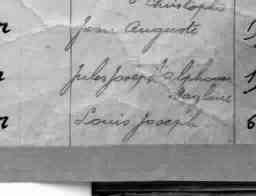 Christophe
r Jean Auguste 1
r Jules Joseph Alphonse 1
r Louis Joseph 6